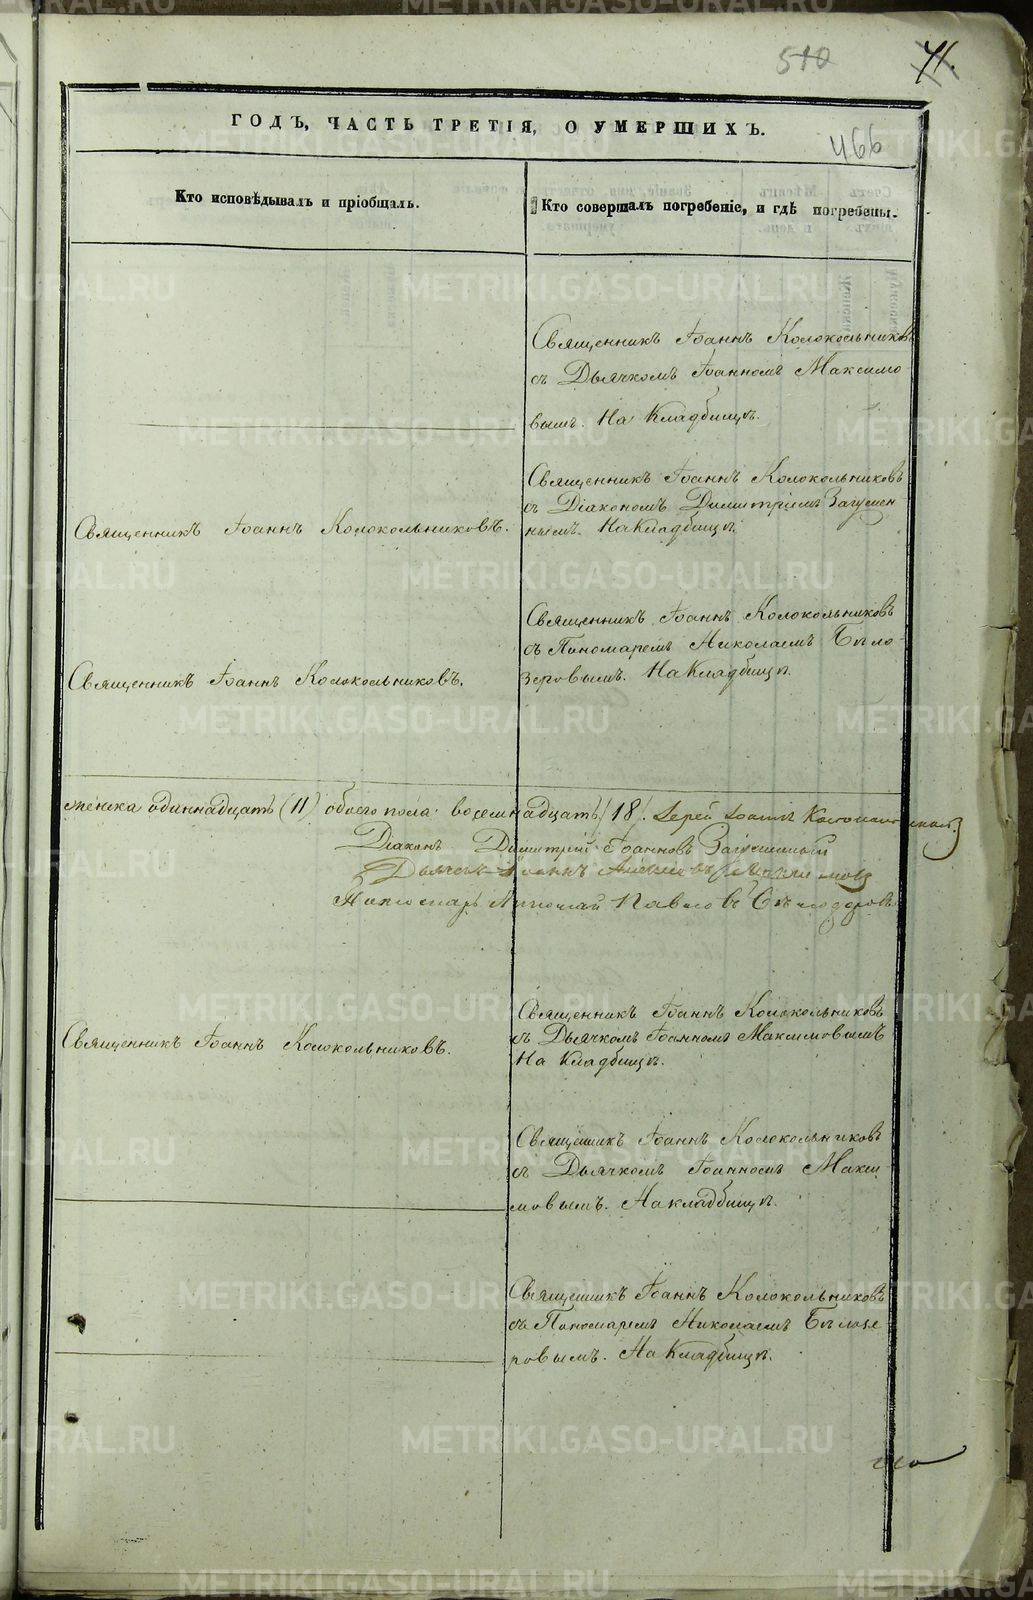 510
71.
ГОДЪ, ЧАСТЬ ТРЕТІЯ, О УМЕРШИХЪ.
466
Кто исповѣдывалъ и пріобщалъ.
Кто совершалъ погребеніе, и гдѣ погребены.
Священникъ Іоаннъ Колокольниковъ
съ Дьячкомъ Іоанномъ Максимо
вымъ. На Кладбищѣ.
Священникъ Іоаннъ Колокольниковъ
съ Діакономъ Димитріемъ Загумен
нымъ. На Кладбищѣ.
Священникъ Іоаннъ Колокольниковъ.
Священникъ Іоаннъ Колокольниковъ
съ Пономаремъ Николаемъ Бѣло-
зеровымъ. На Кладбищѣ.
Священникъ Іоаннъ Колокольниковъ.
женска одиннадцать (11) обоего пола восемнадцать (18). Іерей Іоаннъ
Діаконъ Димитрій Іоанновъ Загуменный
Дьячекъ Іоаннъ Максимовъ
Пономарь Николай Павловъ Бѣлозеровъ
Священникъ Іоаннъ Колокольниковъ.
Священникъ Іоаннъ Колокольниковъ
съ Дьячкомъ Іоанномъ Максимовымъ
На Кладбищѣ.
Священникъ Іоаннъ Колокольниковъ
съ Дьячкомъ Іоанномъ Макси-
мовымъ. На кладбищѣ.
Священникъ Іоаннъ Колокольниковъ
съ Пономаремъ Николаемъ Бѣлозе
ровымъ. На Кладбищѣ.
METRIKI.GASO-URAL.RU